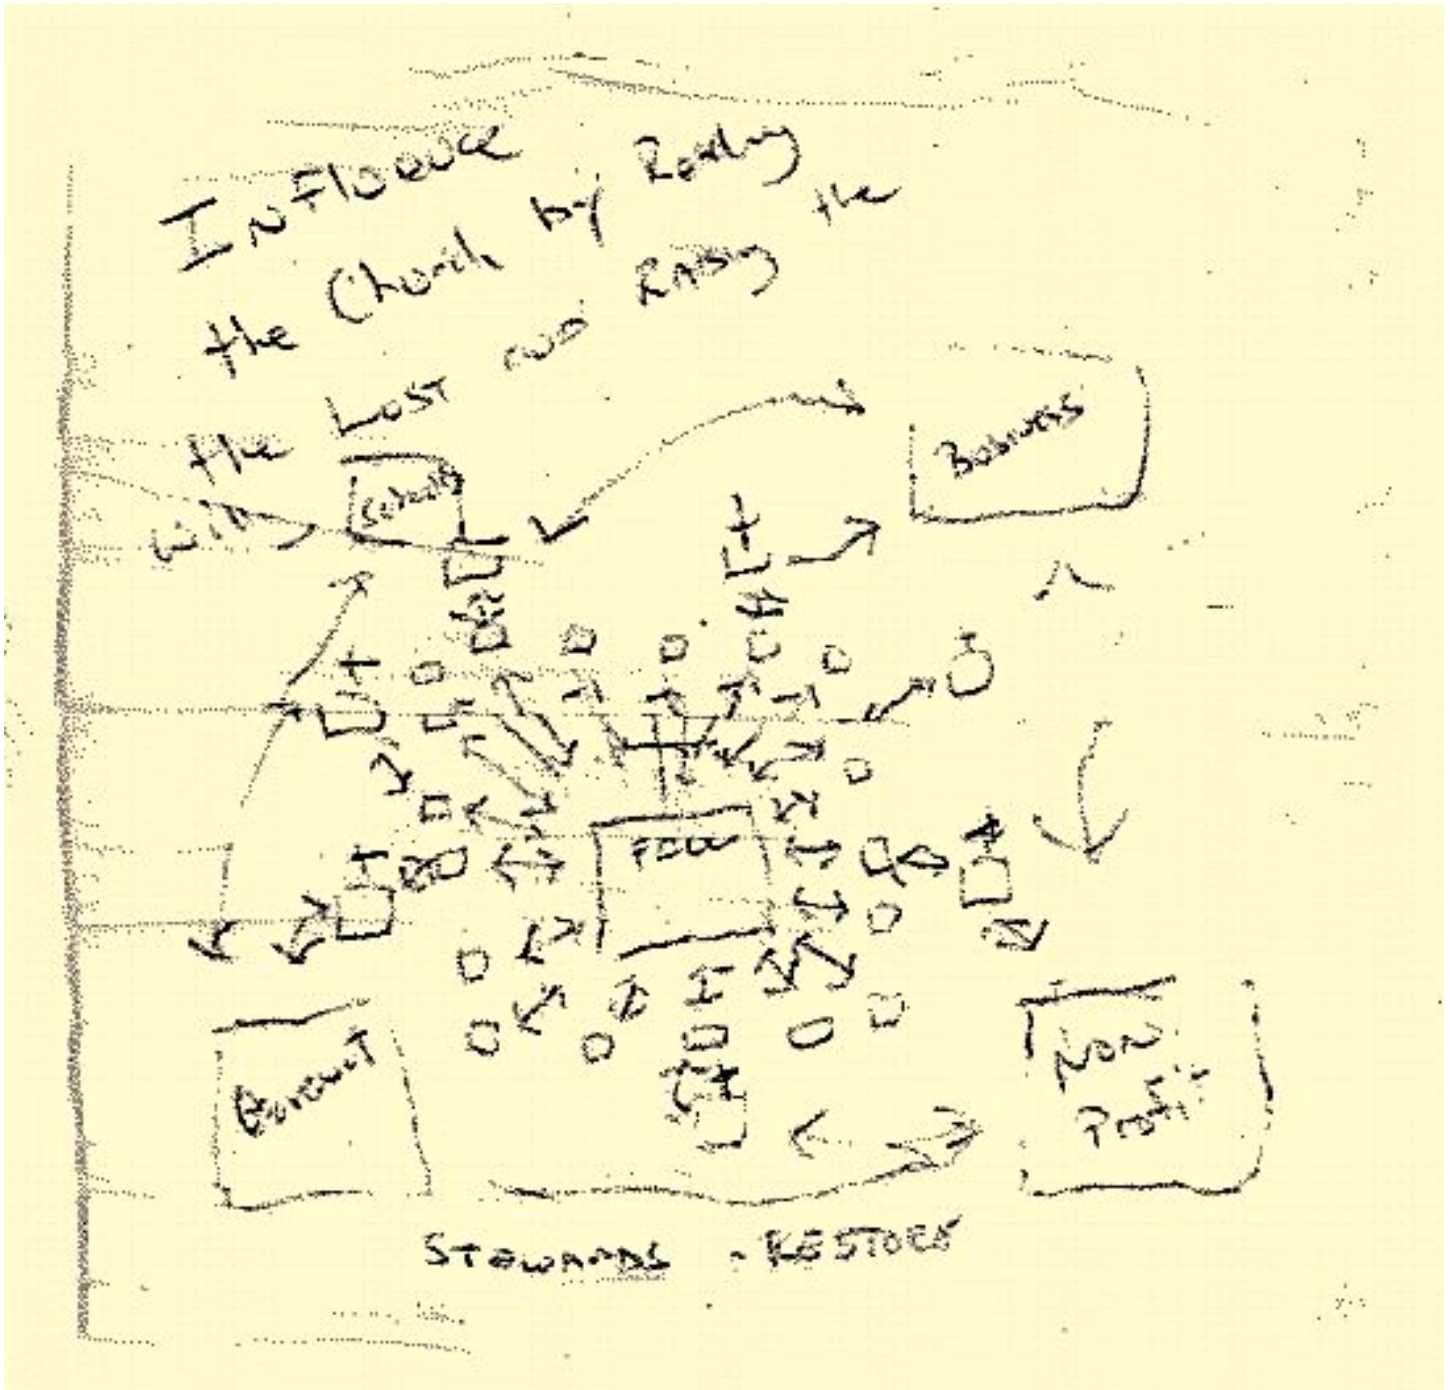 Influence
the Church by Reaching
the Lost and Raising the
Willing
Schools
Business
FCW
Non
Profit
STEWARDS - RESTORE